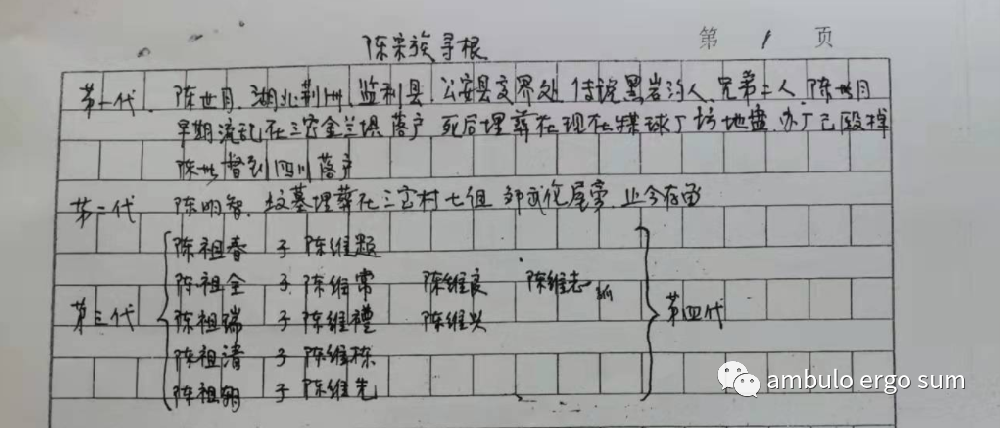 陈宗族寻根
第 1 页
第一代. 陈世月. 湖北荆州. 监利县. 公安县交界处 传说黑岩沟人. 兄弟二人. 陈世月
早期流记在三宫金兰垻落户 死后埋葬在现在煤球厂坊地盘. 办厂已毁掉
陈世 到四川落户
第二代 陈明智. 坟墓埋葬在三宫村七组 邹武伦屋旁 止今存在
陈祖春 子 陈维题
陈祖全 子 陈维常 陈维良 陈维志
第三代 陈祖瑞 子 陈维禮 陈维兴 第四代
陈祖清 子 陈维栋
陈祖 子 陈维先
ambulo ergo sum